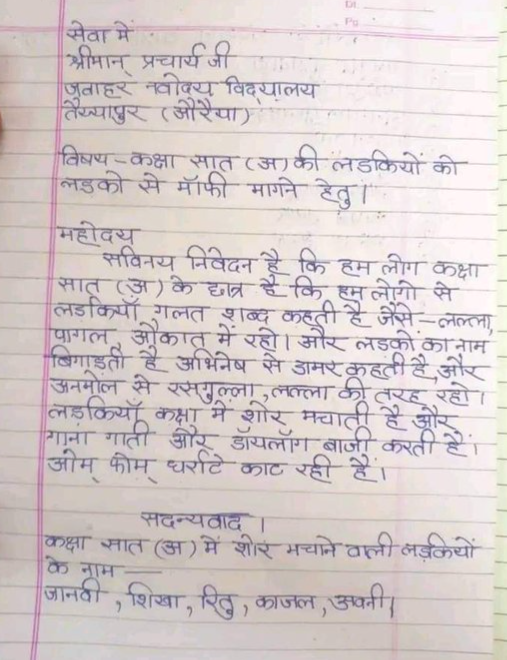 सेवा में
श्रीमान् प्रचार्य जी
जवाहर नवोदय विद्यालय
तैय्यापुर (औरैया)
विषय - कक्षा सात (अ) की लडकियों को
लडको से मॉफी मागने हेतु।
महोदय
सविनय निवेदन है कि हम लोग कक्षा
सात (अ) के छात्र है कि हम लोगो से
लडकियाँ गलत शब्द कहती है जैसे - लल्ला,
पागल, औकात में रहो। और लडको का नाम
बिगाडती है अभिनेष से डामर कहती है, और
अनमोल से रसगुल्ला, लल्ला की तरह रहो।
लडकियाँ कक्षा में शोर मचाती है और
गाना गाती और डॉयलॉग बाजी करती हैं।
ओम् फोम् धर्राटे काट रही हैं।
सदन्यवाद।
कक्षा सात (अ) में शोर मचाने वाली लडकियों
के नाम —
जानवी, शिखा, रितु, काजल, अवनी।